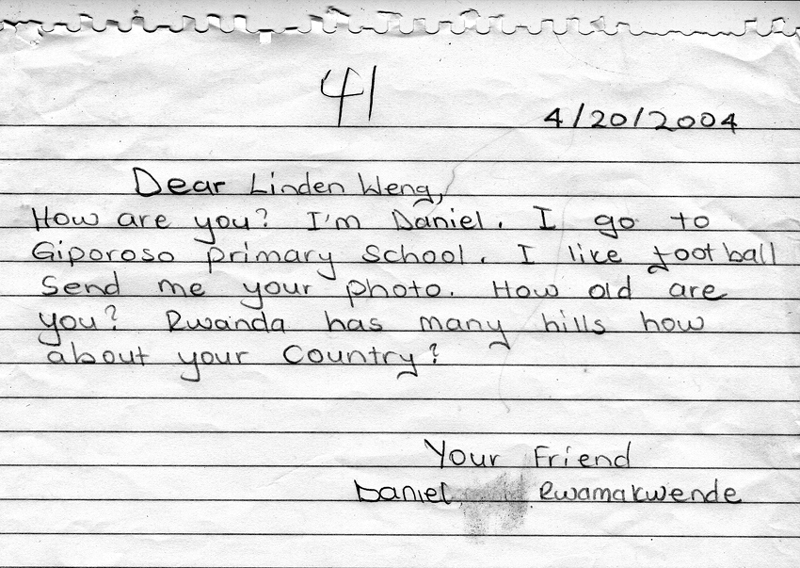 41
4/20/2004
Dear Linden Weng,
How are you? I'm Daniel. I go to
Giporoso primary school. I like football
Send me your photo. How old are
you? Rwanda has many hills how
about your Country?
Your Friend
Daniel Rwamakwende